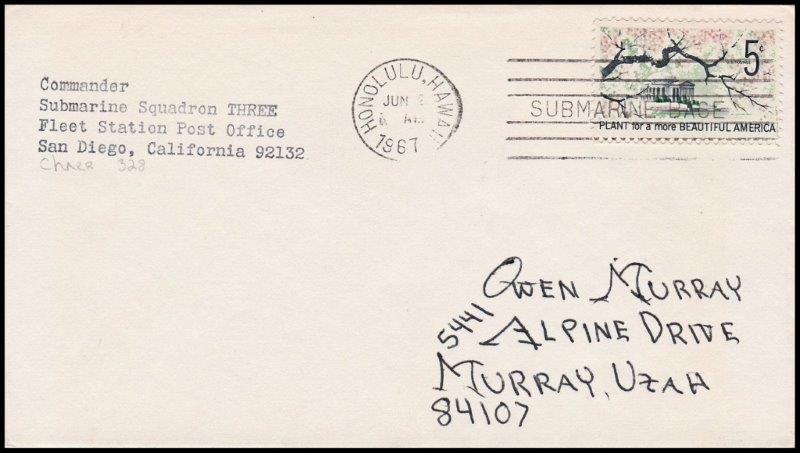 Commander
Submarine Squadron THREE
Fleet Station Post Office
San Diego, California 92132
328
HONOLULU, HAWAII
JUN
AM
1967
SUBMARINE BASE
5c
PLANT for a more BEAUTIFUL AMERICA
Owen Murray
5441 Alpine Drive
Murray, Utah
84107